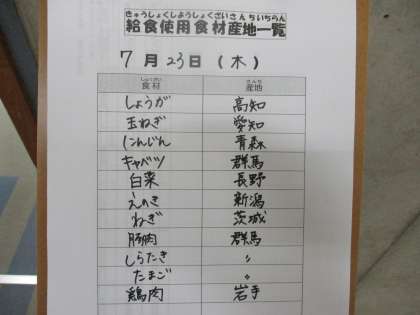 きゅうしょくしようしょくざいさんちいちらん
給食使用食材産地一覧
7月23日(木)
しょくざい さんち
食材 産地
しょうが 高知
玉ねぎ 愛知
にんじん 青森
キャベツ 群馬
白菜 長野
えのき 新潟
ねぎ 茨城
豚肉 群馬
しらたき 〃
たまご 〃
鶏肉 岩手